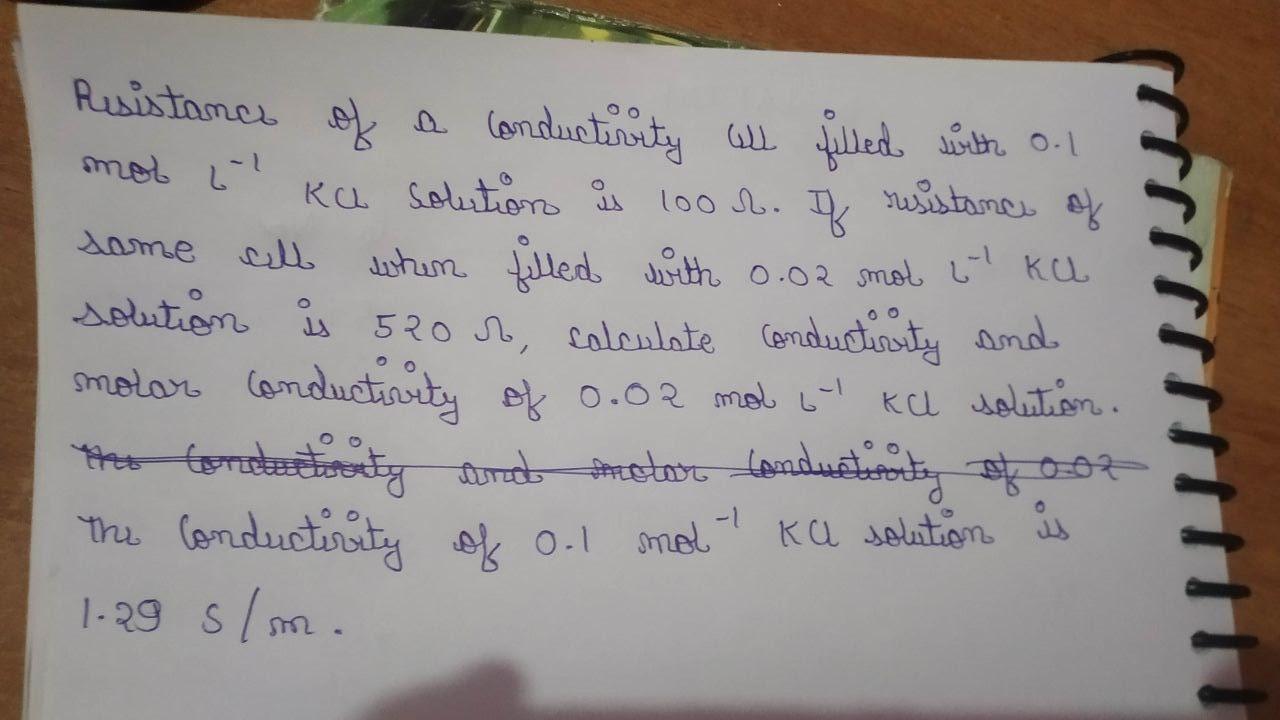 Resistance of a conductivity cell filled with 0.1
mol L⁻¹ KCl solution is 100 Ω. If resistance of
same cell when filled with 0.02 mol L⁻¹ KCl
solution is 520 Ω, calculate conductivity and
molar conductivity of 0.02 mol L⁻¹ KCl solution.
The conductivity and molar conductivity of 0.02
The conductivity of 0.1 mol⁻¹ KCl solution is
1.29 S/m.